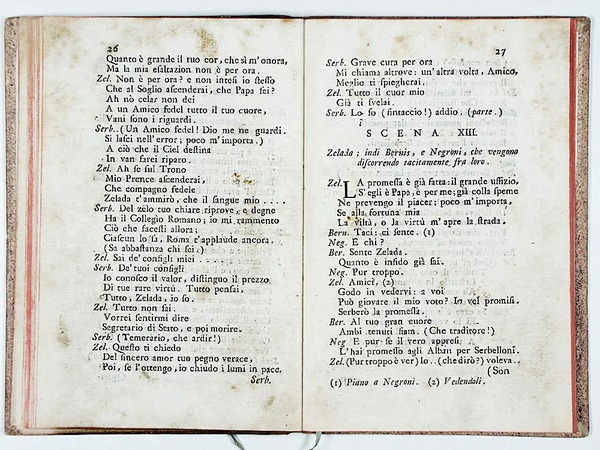 26
Quanto è grande il tuo cor, che sì m'onora,
Ma la mia esaltazion non è per ora.
Zel. Non è per ora? e non intesi io stesso
Che al Soglio ascenderai, che Papa sei?
Ah nò celar non dei
A un Amico fedel tutto il tuo cuore,
Vani sono i riguardi.
Serb. (Un Amico fedel! Dio me ne guardi.
Si lasci nell'error; poco m'importa.)
A ciò che il Ciel destina
In van farei riparo.
Zel. Ah se sul Trono
Mio Prence ascenderai,
Che compagno fedele
Zelada t'ammirò, che il sangue mio . . . .
Serb. Del zelo tuo chiare riprove, e degne
Ha il Collegio Romano; io mi rammento
Ciò che facesti allora;
Ciascun lo sa, Roma t'applaude ancora.
(Sa abbastanza chi sei.)
Zel. Sai de' consigli miei . . . . .
Serb. De' tuoi consigli
Io conosco il valor, distinguo il prezzo
Di tue rare virtù. Tutto pensai,
Tutto, Zelada, io so.
Zel. Tutto non sai.
Vorrei sentirmi dire
Segretario di Stato, e poi morire.
Serb. (Temerario, che ardir!)
Zel. Questo ti chiedo
Del sincero amor tuo pegno verace,
Poi, se l'ottengo, io chiudo i lumi in pace.
Serb.
27
Serb. Grave cura per ora
Mi chiama altrove: un'altra volta, Amico,
Meglio ti spiegherai.
Zel. Tutto il cuor mio
Già ti svelai.
Serb. Lo so (fintaccio!) addio. (parte.)
SCENA XIII.
Zelada; indi Bernis, e Negroni, che vengono
discorrendo tacitamente fra loro.
Zel. LA promessa è già fatta: il grande uffizio,
S'egli è Papa, è per me; già colla speme
Ne prevengo il piacer; poco m'importa,
Se alla fortuna mia
La viltà, o la virtù m'apre la strada.
Bern. Taci: ci sente. (1)
Neg. E chi?
Ber. Sente Zelada.
Quanto è infido già sai.
Neg. Pur troppo.
Zel. Amici, (2)
Godo in vedervi: a voi
Può giovare il mio voto? Io vel promisi.
Serberò la promessa.
Ber. Al tuo gran cuore
Ambi tenuti siam. (Che traditore!)
Neg E pur se il vero appresi
L'hai promesso agli Alban per Serbelloni.
Zel. (Pur troppo è ver) Io.. (che dirò?) voleva..
(Son
(1) Piano a Negroni. (2) Vedendoli.